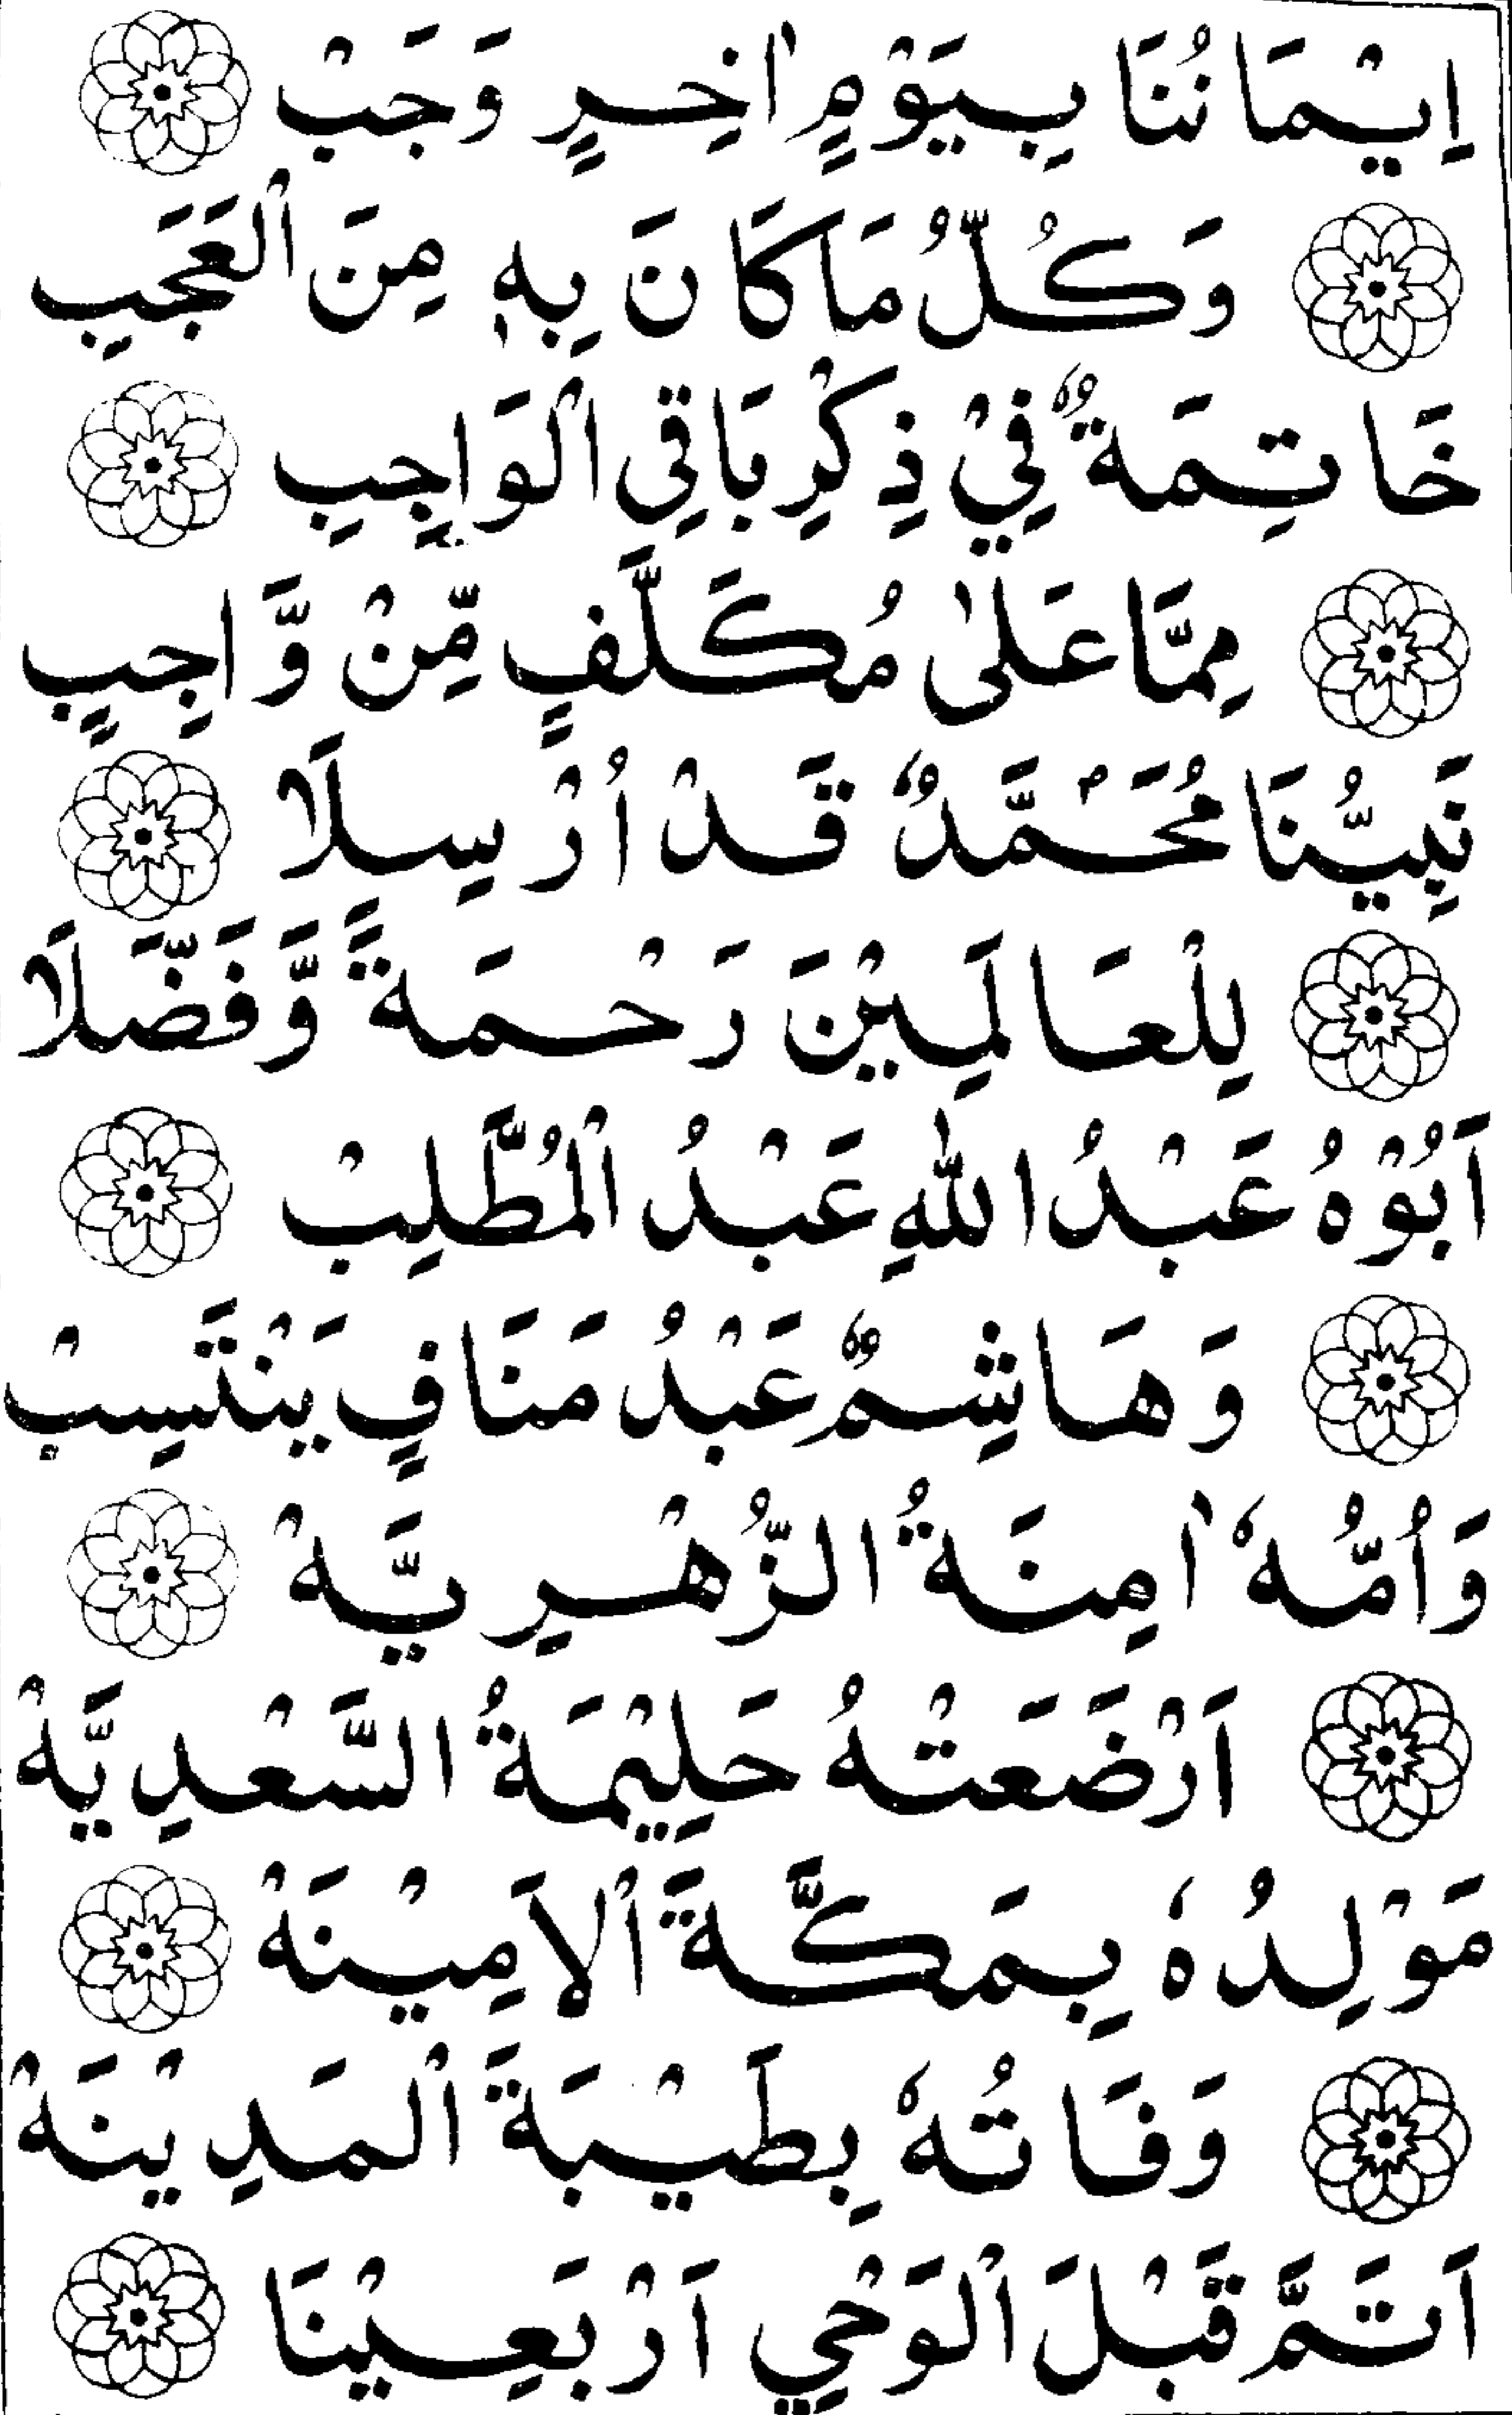 اِيْمَانُنَا بِيَوْمٍ اٰخِرٍ وَجَبْ
وَكُلُّ مَا كَانَ بِهٖ مِنَ الْعَجَبِ
خَاتِمَةٌ فِيْ ذِكْرِ بَاقِي الْوَاجِبِ
مِمَّا عَلٰى مُكَلَّفٍ مِّنْ وَّاجِبٍ
نَبِيُّنَا مُحَمَّدٌ قَدْ اُرْسِلَا
لِلْعَالَمِيْنَ رَحْمَةً وَّفَضَّلَا
اَبُوْهُ عَبْدُ اللّٰهِ عَبْدُ الْمُطَّلِبْ
وَهَاشِمٌ عَبْدُ مَنَافٍ يَنْتَسِبْ
وَاُمُّهٗ اٰمِنَةُ الزُّهْرِيَّهْ
اَرْضَعَتْهُ حَلِيْمَةُ السَّعْدِيَّهْ
مَوْلِدُهٗ بِمَكَّةَ الْاَمِيْنَهْ
وَفَاتُهٗ بِطَيْبَةَ الْمَدِيْنَهْ
اَتَمَّ قَبْلَ الْوَحْيِ اَرْبَعِيْنَا